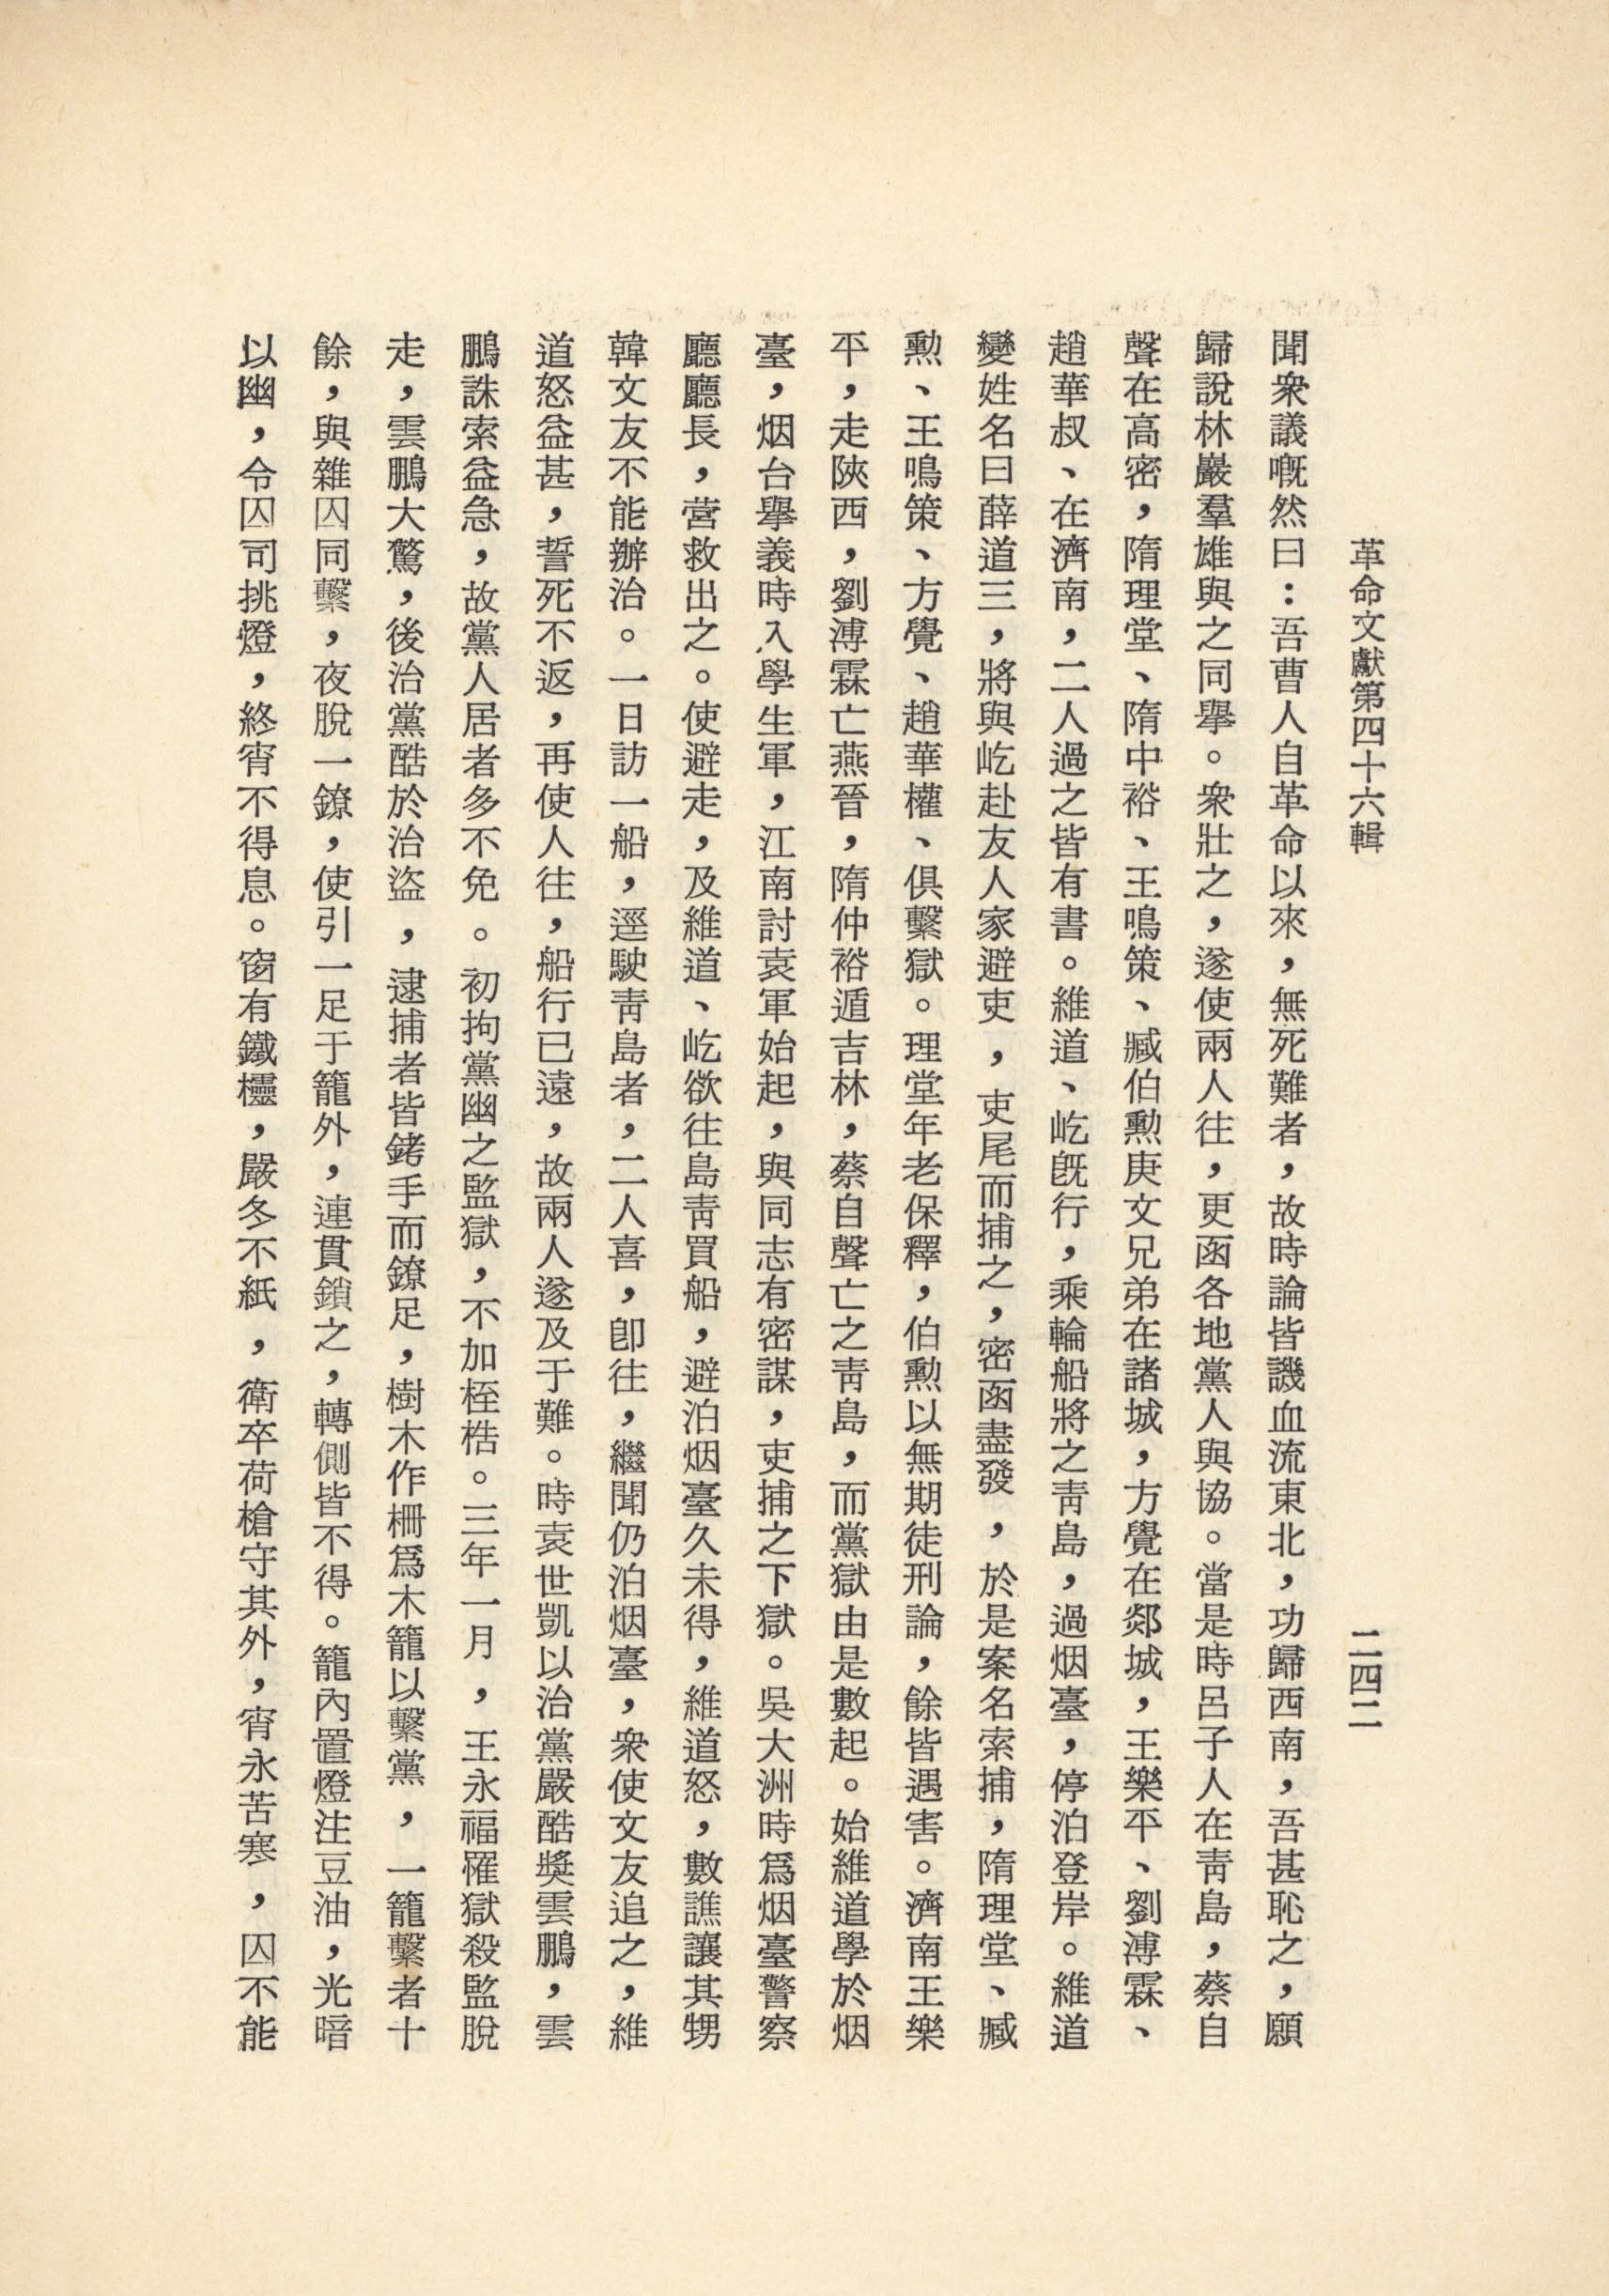 革命文獻第四十六輯
二四二
聞衆議嘅然曰：吾曹人自革命以來，無死難者，故時論皆譏血流東北，功歸西南，吾甚恥之，願
歸說林嚴羣雄與之同擧。衆壯之，遂使兩人往，更函各地黨人與協。當是時呂子人在靑島，蔡自
聲在高密，隋理堂、隋中裕、王鳴策、臧伯勲庚文兄弟在諸城，方覺在郯城，王樂平、劉溥霖、
趙華叔、在濟南，二人過之皆有書。維道、屹旣行，乘輪船將之靑島，過烟臺，停泊登岸。維道
變姓名曰薛道三，將與屹赴友人家避吏，吏尾而捕之，密函盡發，於是案名索捕，隋理堂、臧
勲、王鳴策、方覺、趙華權、俱繫獄。理堂年老保釋，伯勲以無期徒刑論，餘皆遇害。濟南王樂
平，走陝西，劉溥霖亡燕晉，隋仲裕遁吉林，蔡自聲亡之靑島，而黨獄由是數起。始維道學於烟
臺，烟台擧義時入學生軍，江南討袁軍始起，與同志有密謀，吏捕之下獄。吳大洲時爲烟臺警察
廳廳長，營救出之。使避走，及維道、屹欲往島靑買船，避泊烟臺久未得，維道怒，數譙讓其甥
韓文友不能辦治。一日訪一船，逕駛靑島者，二人喜，卽往，繼聞仍泊烟臺，衆使文友追之，維
道怒益甚，誓死不返，再使人往，船行已遠，故兩人遂及于難。時袁世凱以治黨嚴酷獎雲鵬，雲
鵬誅索益急，故黨人居者多不免。初拘黨幽之監獄，不加桎梏。三年一月，王永福罹獄殺監脫
走，雲鵬大驚，後治黨酷於治盜，逮捕者皆銬手而鐐足，樹木作柵爲木籠以繫黨，一籠繫者十
餘，與雜囚同繫，夜脫一鐐，使引一足于籠外，連貫鎖之，轉側皆不得。籠內置燈注豆油，光暗
以幽，令囚司挑燈，終宵不得息。窗有鐵櫺，嚴冬不紙，衛卒荷槍守其外，宵永苦寒，囚不能